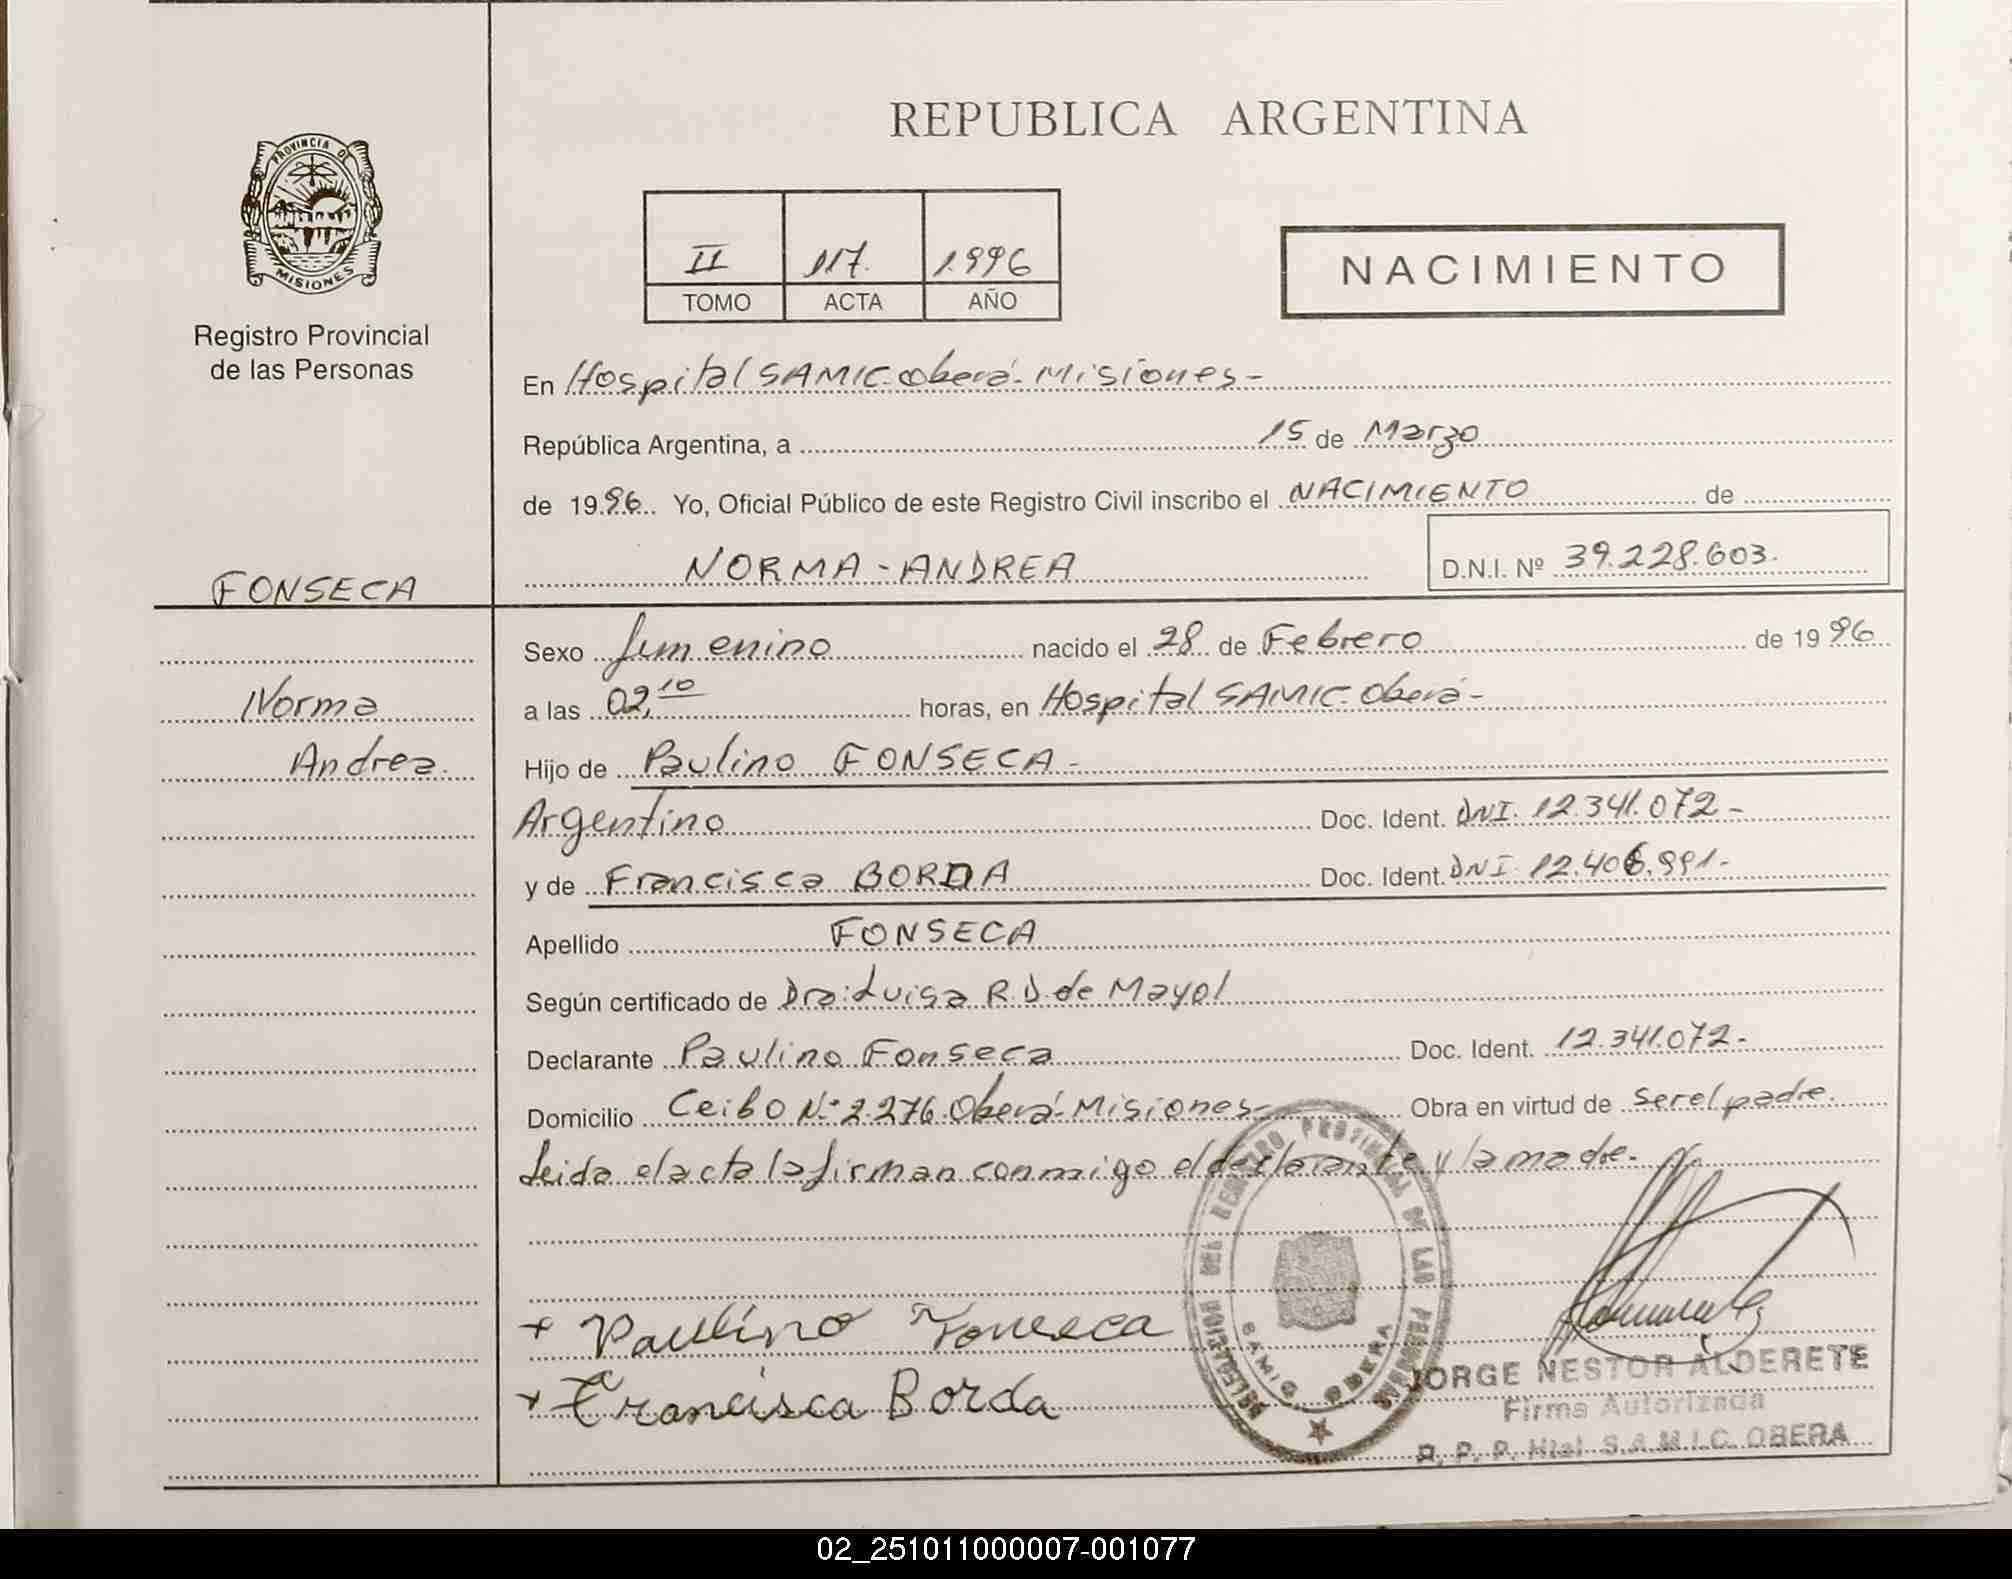 REPUBLICA ARGENTINA
PROVINCIA DE
MISIONES
Registro Provincial
de las Personas
II 117. 1996
TOMO ACTA AÑO
NACIMIENTO
En Hospital SAMIC. Oberá- Misiones-
República Argentina, a 15 de Marzo
de 1996 Yo, Oficial Público de este Registro Civil inscribo el NACIMIENTO de
NORMA - ANDREA D.N.I. Nº 39.228.603.
FONSECA
Norma
Andrea.
Sexo femenino nacido el 28 de Febrero de 1996
a las 02,10 horas, en Hospital SAMIC. Oberá-
Hijo de Paulino FONSECA-
Argentino Doc. Ident. DNI. 12.341.072-
y de Francisca BORDA Doc. Ident. DNI 12.406.991-
Apellido FONSECA
Según certificado de Dra: Luisa R.D. de Mayol
Declarante Paulino Fonseca Doc. Ident. 12.341.072-
Domicilio Ceibo N° 2.276. Oberá- Misiones- Obra en virtud de ser el padre.
Leida el acta la firman conmigo el declarante y la madre.
DELEGACION DEL REGISTRO PROVINCIAL DE LAS PERSONAS
SAMIC. OBERA
+ Paulino Fonseca
+ Francisca Borda
JORGE NESTOR ALDERETE
Firma Autorizada
R. P. P. Htal. S.A.M.I.C. OBERA
02_251011000007-001077